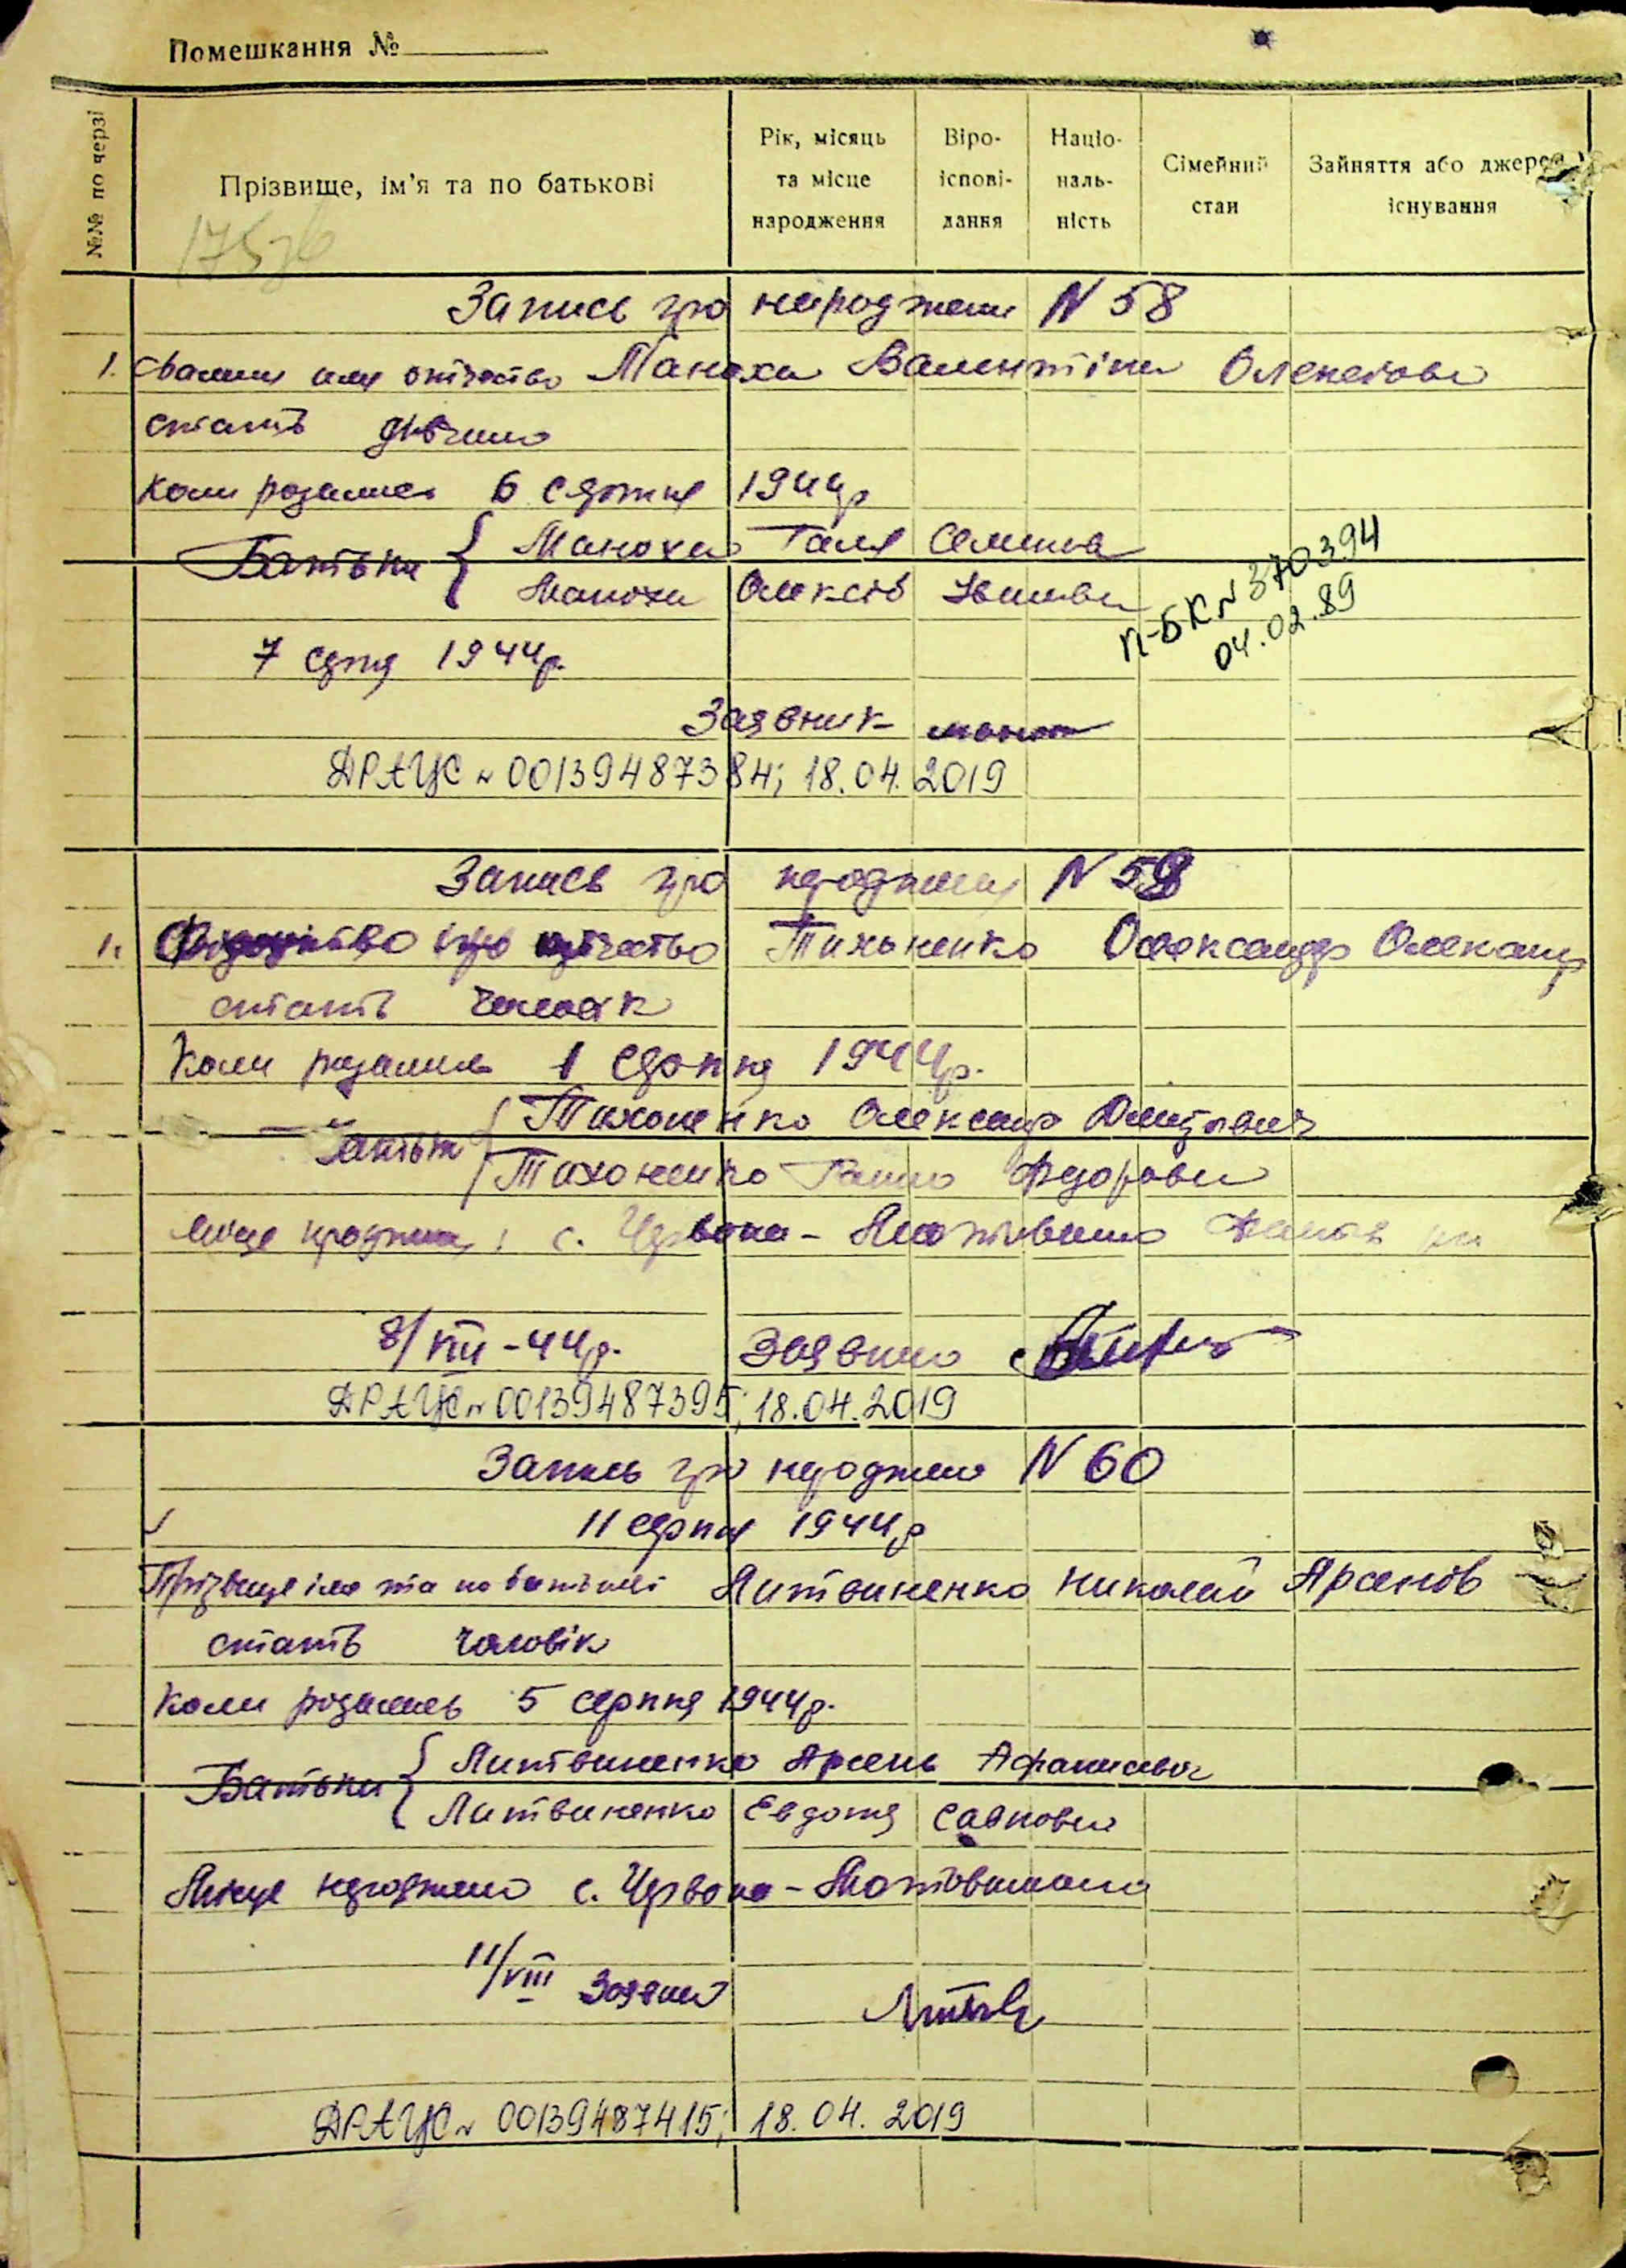 Помешкання №
№№ по черзі
Прізвище, ім'я та по батькові
Рік, місяць та місце народження
Віро-іспові-дання
Націо-наль-ність
Сімейний стан
Зайняття або джерела існування
Запись про народжене N 58
1. Манoха Валентіна Олексіовa
стать дівчина
коли родились 6 серпня 1944р
Батьки { Маноха Галя Семенова
Маноха Олексій Іванови
П-БК N 370394
04.02.89
7 серпня 1944р.
Заявник
ДРАЦС N 00139487384; 18.04.2019
Запись про народжения N 59
1. отчество Тихоненко Олександр Олександр
стать чоловік
Коли родились 1 серпня 1944р.
Батьки { Тихоненко Олександр Дмитрович
Тихоненко Ганна Федоровна
Місце народжения: с. Червона-Мотовиловка
8/VIII-44р. Заявник
ДРАЦС N 00139487395; 18.04.2019
Запись про народжене N 60
11 серпня 1944р
Прізвище імя та по батькові Литвиненко Николай Арсенов
стать чоловік
Коли родились 5 серпня 1944р.
Батьки { Литвиненко Арсень Афанасьевич
Литвиненко Евдокия Савковна
Місце народжено с. Червона-Мотовиловка
11/VIII Заявник
ДРАЦС N 00139487415; 18.04.2019